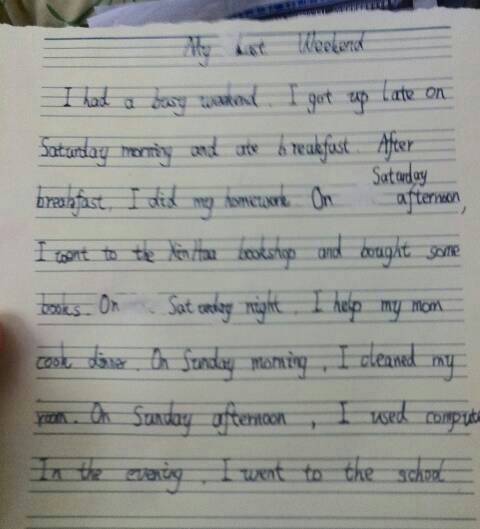 My Last Weekend
I had a busy weekend. I got up late on
Saturday morning and ate breakfast. After
breakfast, I did my homework On Saturday afternoon,
I went to the XinHua bookshop and bought some
books. On Saturday night, I help my mom
cook dinner. On Sunday morning, I cleaned my
room. On Sunday afternoon, I used compute
In the evening, I went to the school